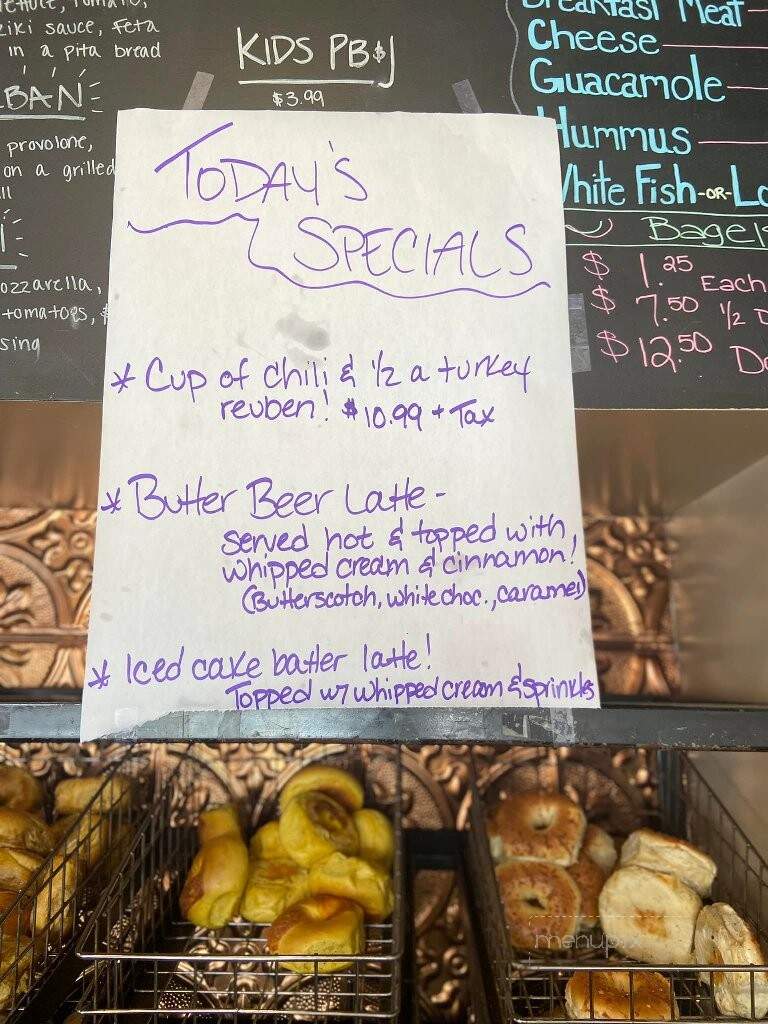 ziki sauce, feta
in a pita bread
KIDS PB&J
$3.99
provolone,
on a grilled
tomatoes,
Breakfast Meat
Cheese
Guacamole
Hummus
White Fish -OR-
Bagels
$1.25 Each
$7.50 1/2
$12.50
TODAY'S
SPECIALS
* Cup of chili & 1/2 a turkey
reuben! $10.99 + Tax
* Butter Beer Latte -
served hot & topped with
whipped cream & cinnamon!
(Butterscotch, white choc., caramel)
* Iced cake batter latte!
Topped w/ whipped cream & sprinkles
menupix